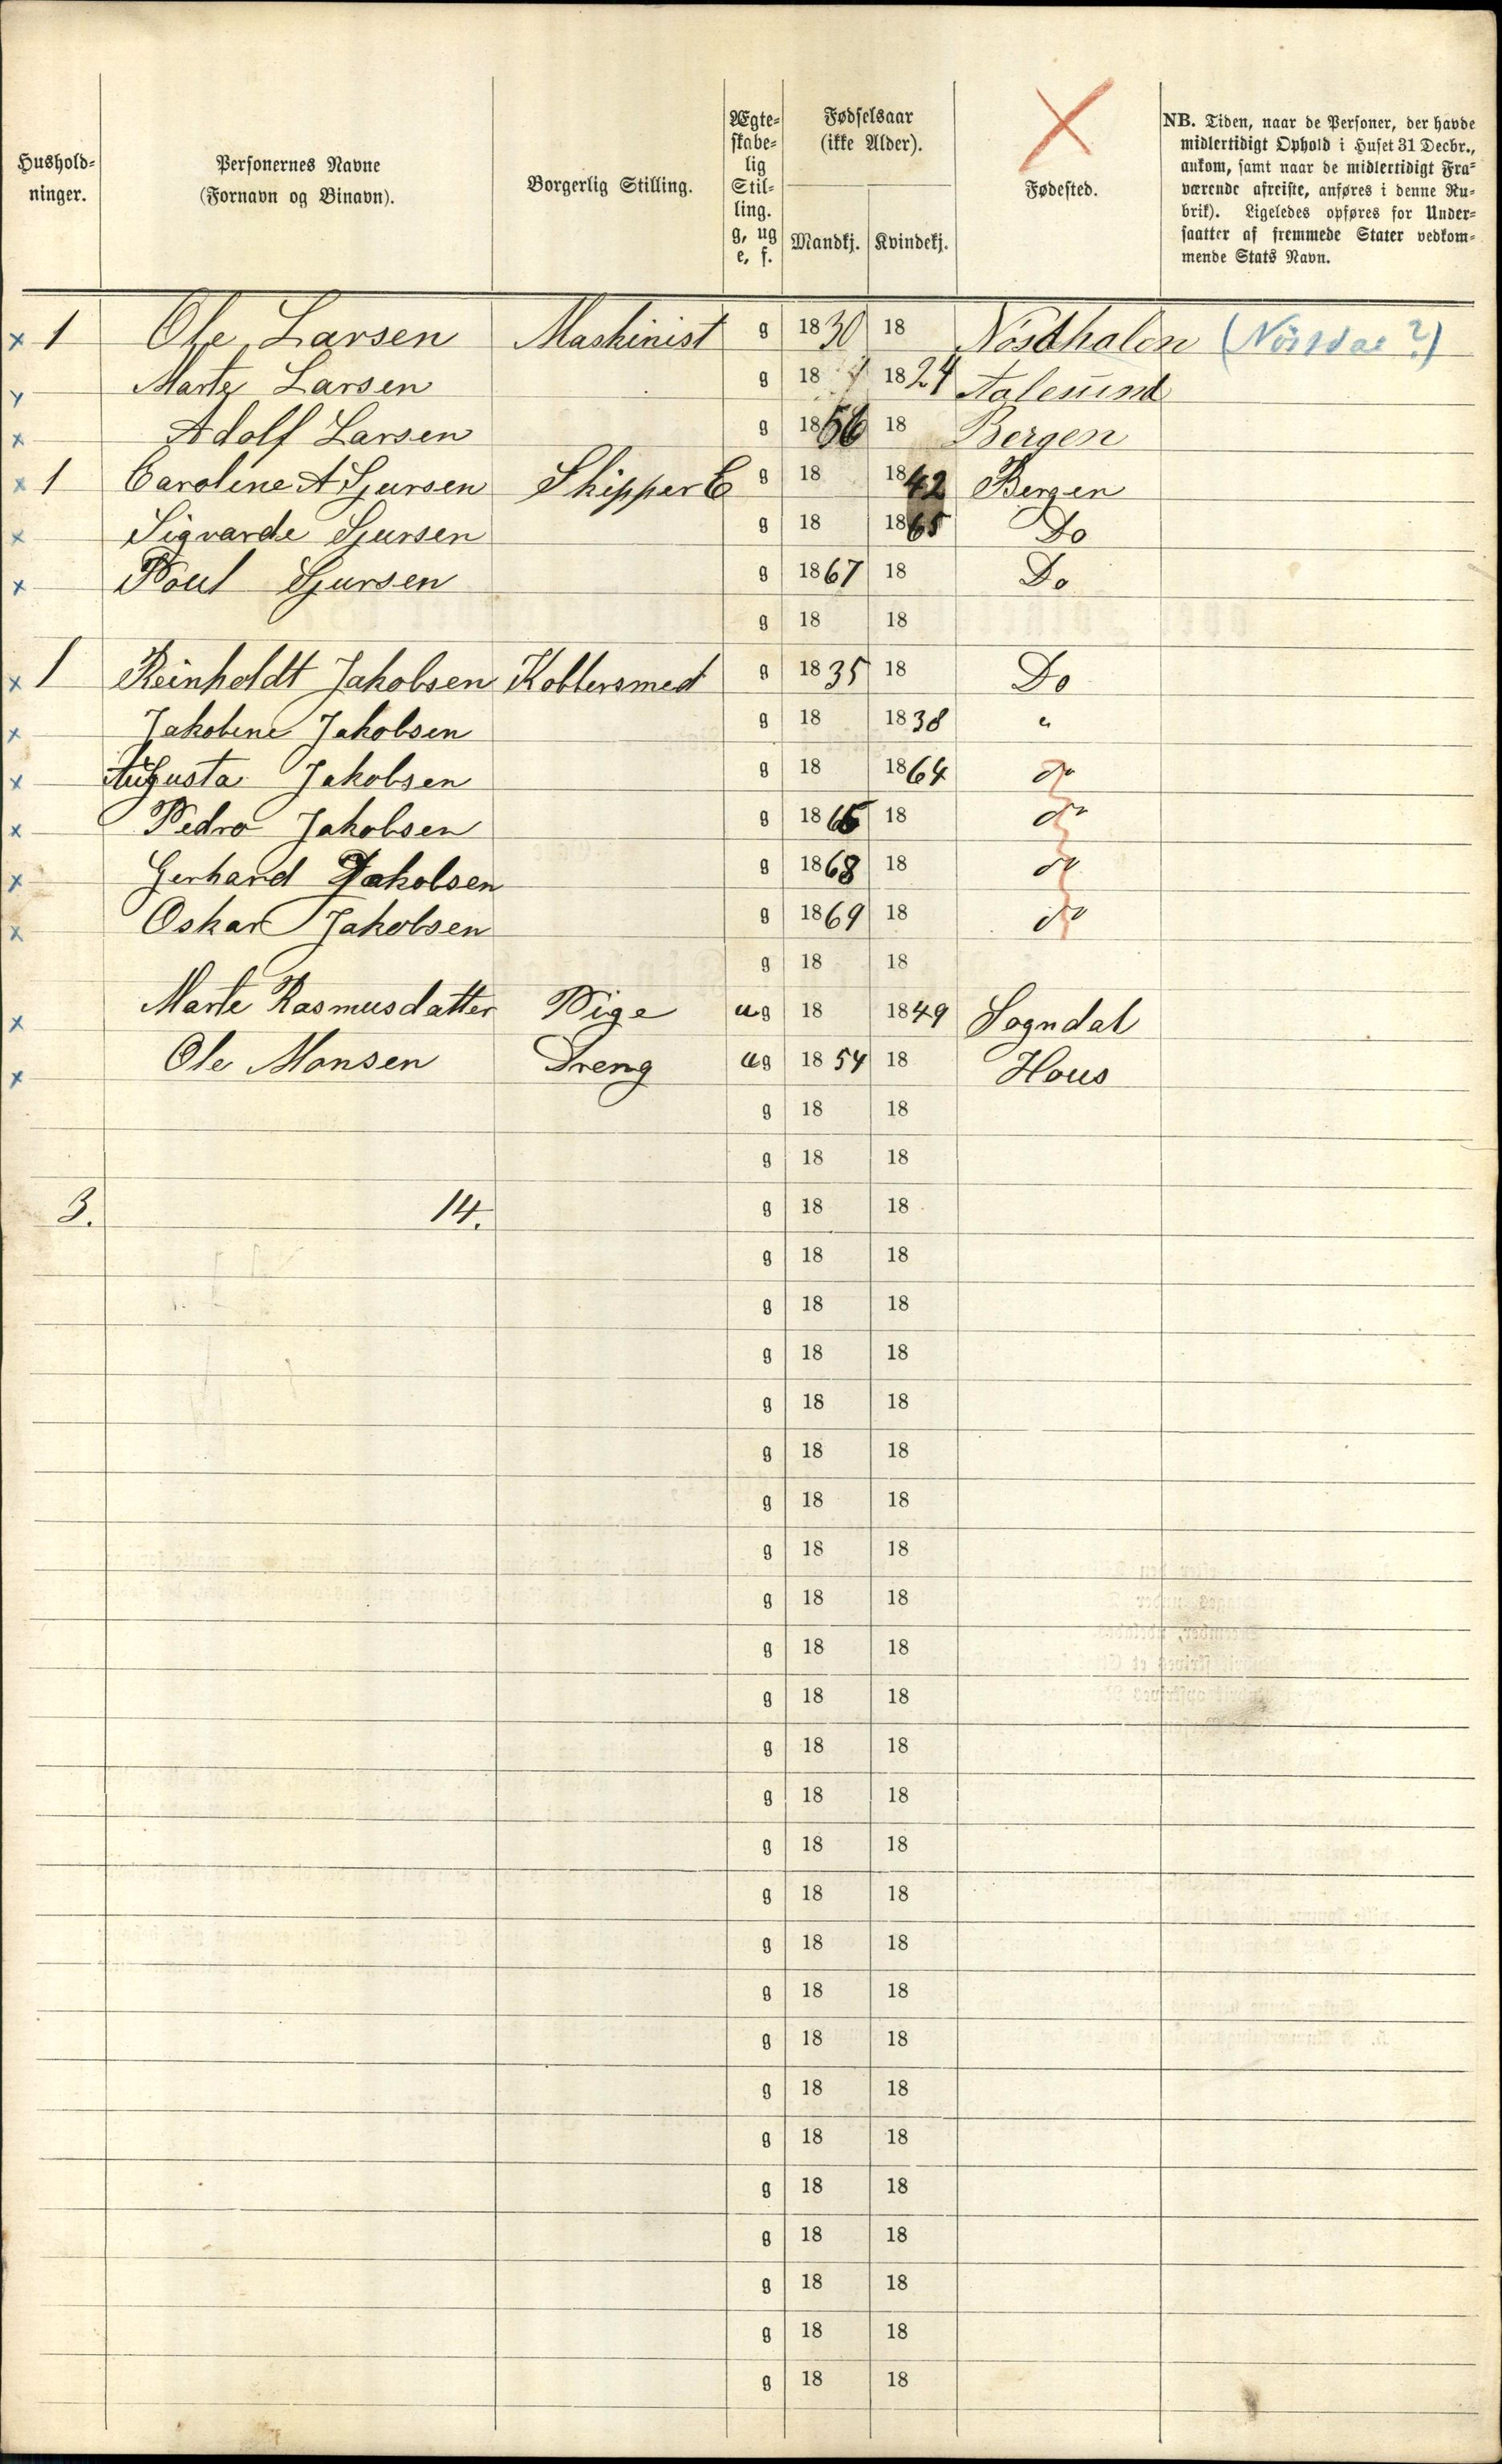 Hushold-
ninger.
Personernes Navne
(Fornavn og Binavn).
Borgerlig Stilling.
Ægte-
skabe-
lig
Stil-
ling.
g, ug
e, f.
Fødselsaar
(ikke Alder).
Mandkj.
Kvindekj.
Fødested.
NB. Tiden, naar de Personer, der havde
midlertidigt Ophold i Huset 31 Decbr.,
ankom, samt naar de midlertidigt Fra-
værende afreiste, anføres i denne Ru-
brik). Ligeledes opføres for Under-
saatter af fremmede Stater vedkom-
mende Stats Navn.
x 1 Ole Larsen Maskinist g 1830 18 Nösthalen
x Marte Larsen g 18 1824 Aalesund
x Adolf Larsen g 1856 18 Bergen
x 1 Caroline A Sjursen Skipper E g 18 1842 Bergen
x Sigvarde Sjursen g 18 1865 Do
x Poul Sjursen g 1867 18 Do
g 18 18
x 1 Reinholdt Jakobsen Kobbersmed g 1835 18 Do
x Jakobine Jakobsen g 18 1838 "
x Augusta Jakobsen g 18 1864 do
x Pedro Jakobsen g 1865 18 do
x Gerhard Jakobsen g 1868 18 do
x Oskar Jakobsen g 1869 18 do
g 18 18
x Marte Rasmusdatter Pige ug 18 1849 Sogndal
x Ole Monsen Dreng ug 1854 18 Hous
g 18 18
g 18 18
3. 14. g 18 18
g 18 18
g 18 18
g 18 18
g 18 18
g 18 18
g 18 18
g 18 18
g 18 18
g 18 18
g 18 18
g 18 18
g 18 18
g 18 18
g 18 18
g 18 18
g 18 18
g 18 18
g 18 18
g 18 18
g 18 18
g 18 18
g 18 18
g 18 18
g 18 18